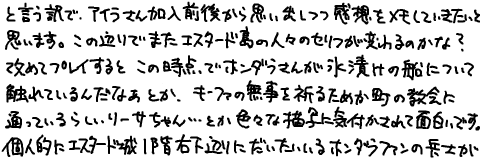 と言う訳で、アイラさん加入前後から思い出しつつ感想をメモしていきたいと
思います。この辺りでまたエスタード島の人々のセリフが変わるのかな？
改めてプレイすると この時点でホンダラさんが氷漬けの船について
触れているんだなあとか、キーファの無事を祈るためか町の教会に
通っているらしいリーサちゃん…とか色々な描写に気付かされて面白いです。
個人的にエスタード城1階右下辺りにだいたいいるホンダラファンの兵士が